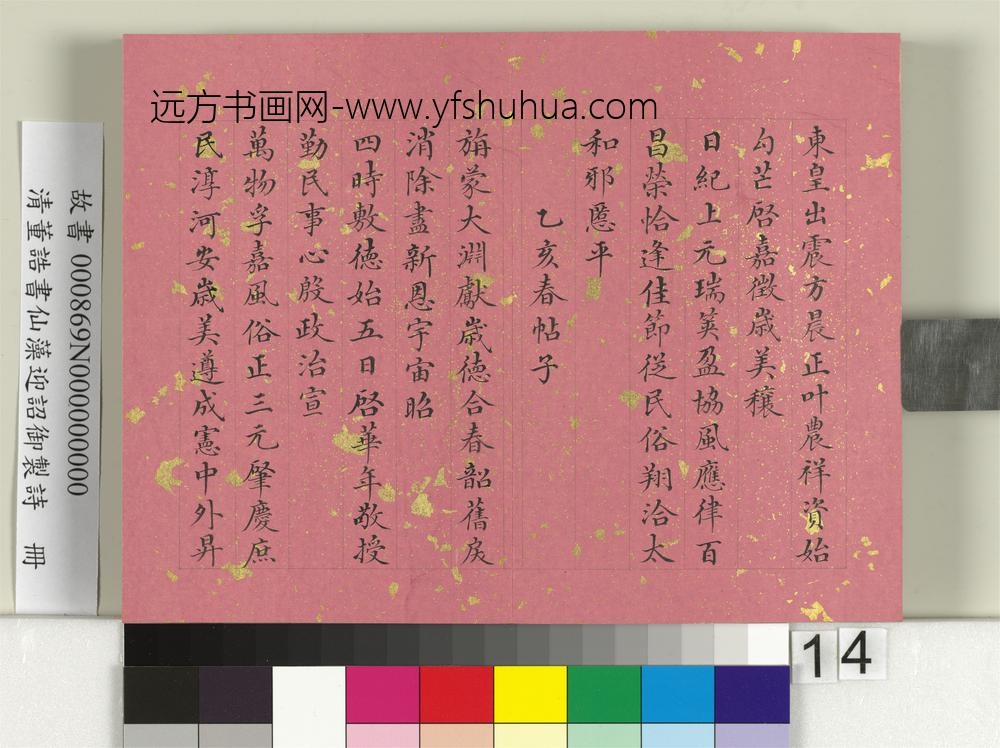 远方书画网-www.yfshuhua.com
東皇出震方晨正叶農祥資始
勾芒啓嘉徵歲美穰
日紀上元瑞荚盈協風應律百
昌榮恰逢佳節從民俗翔洽太
和邪慝平
乙亥春帖子
旃蒙大淵獻歲德合春韶舊戾
消除盡新恩宇宙昭
四時敷德始五日啓華年敬授
勤民事心殷政治宣
萬物孚嘉風俗正三元肇慶庶
民淳河安歲美遵成憲中外昇
故書 000869N000000000
清董誥書仙藻迎詔御製詩 冊
14